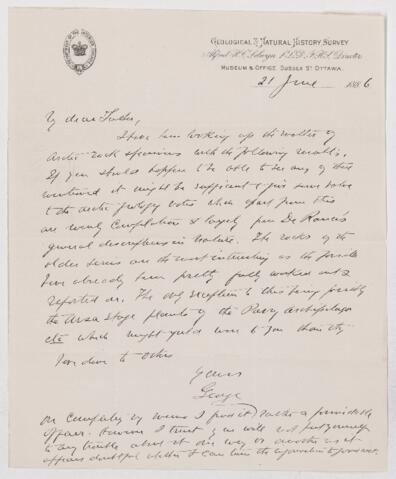 GEOLOGICAL & NATURAL HISTORY SURVEY
Alfred R.C. Selwyn F.R.S. F.G.S. Director
MUSEUM & OFFICE, SUSSEX ST. OTTAWA.
21 June 1886
My dear Father,
I have been looking up the matter of
arctic rock specimens with the following results.
If you should happen to be able to see any of those
mentioned it might be sufficient to give some value
to the arctic geology notes which apart from this
are merely compilation & largely from De Rance's
general descriptions in Nature. The rocks of the
older series are the most interesting as the fossils
have already been pretty fully worked out &
reported on. The only exception to this being possibly
the Ursa Stage plants of the Parry Archipelago
etc which might yield more to you than they
have done to others
Yours
George
On completing my memo I find it rather a formidable
affair. However I trust you will not put yourself
to any trouble about it one way or another as it
appears doubtful whether I can turn the information to good acct.